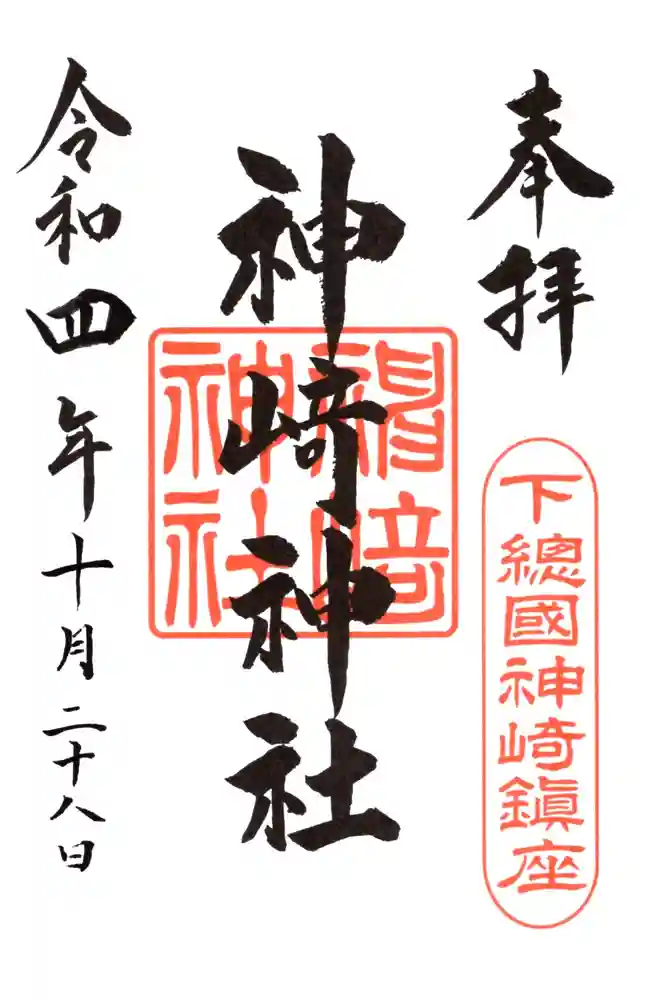 奉拝
下總國神崎鎮座
神崎神社
神崎神社
令和四年十月二十八日